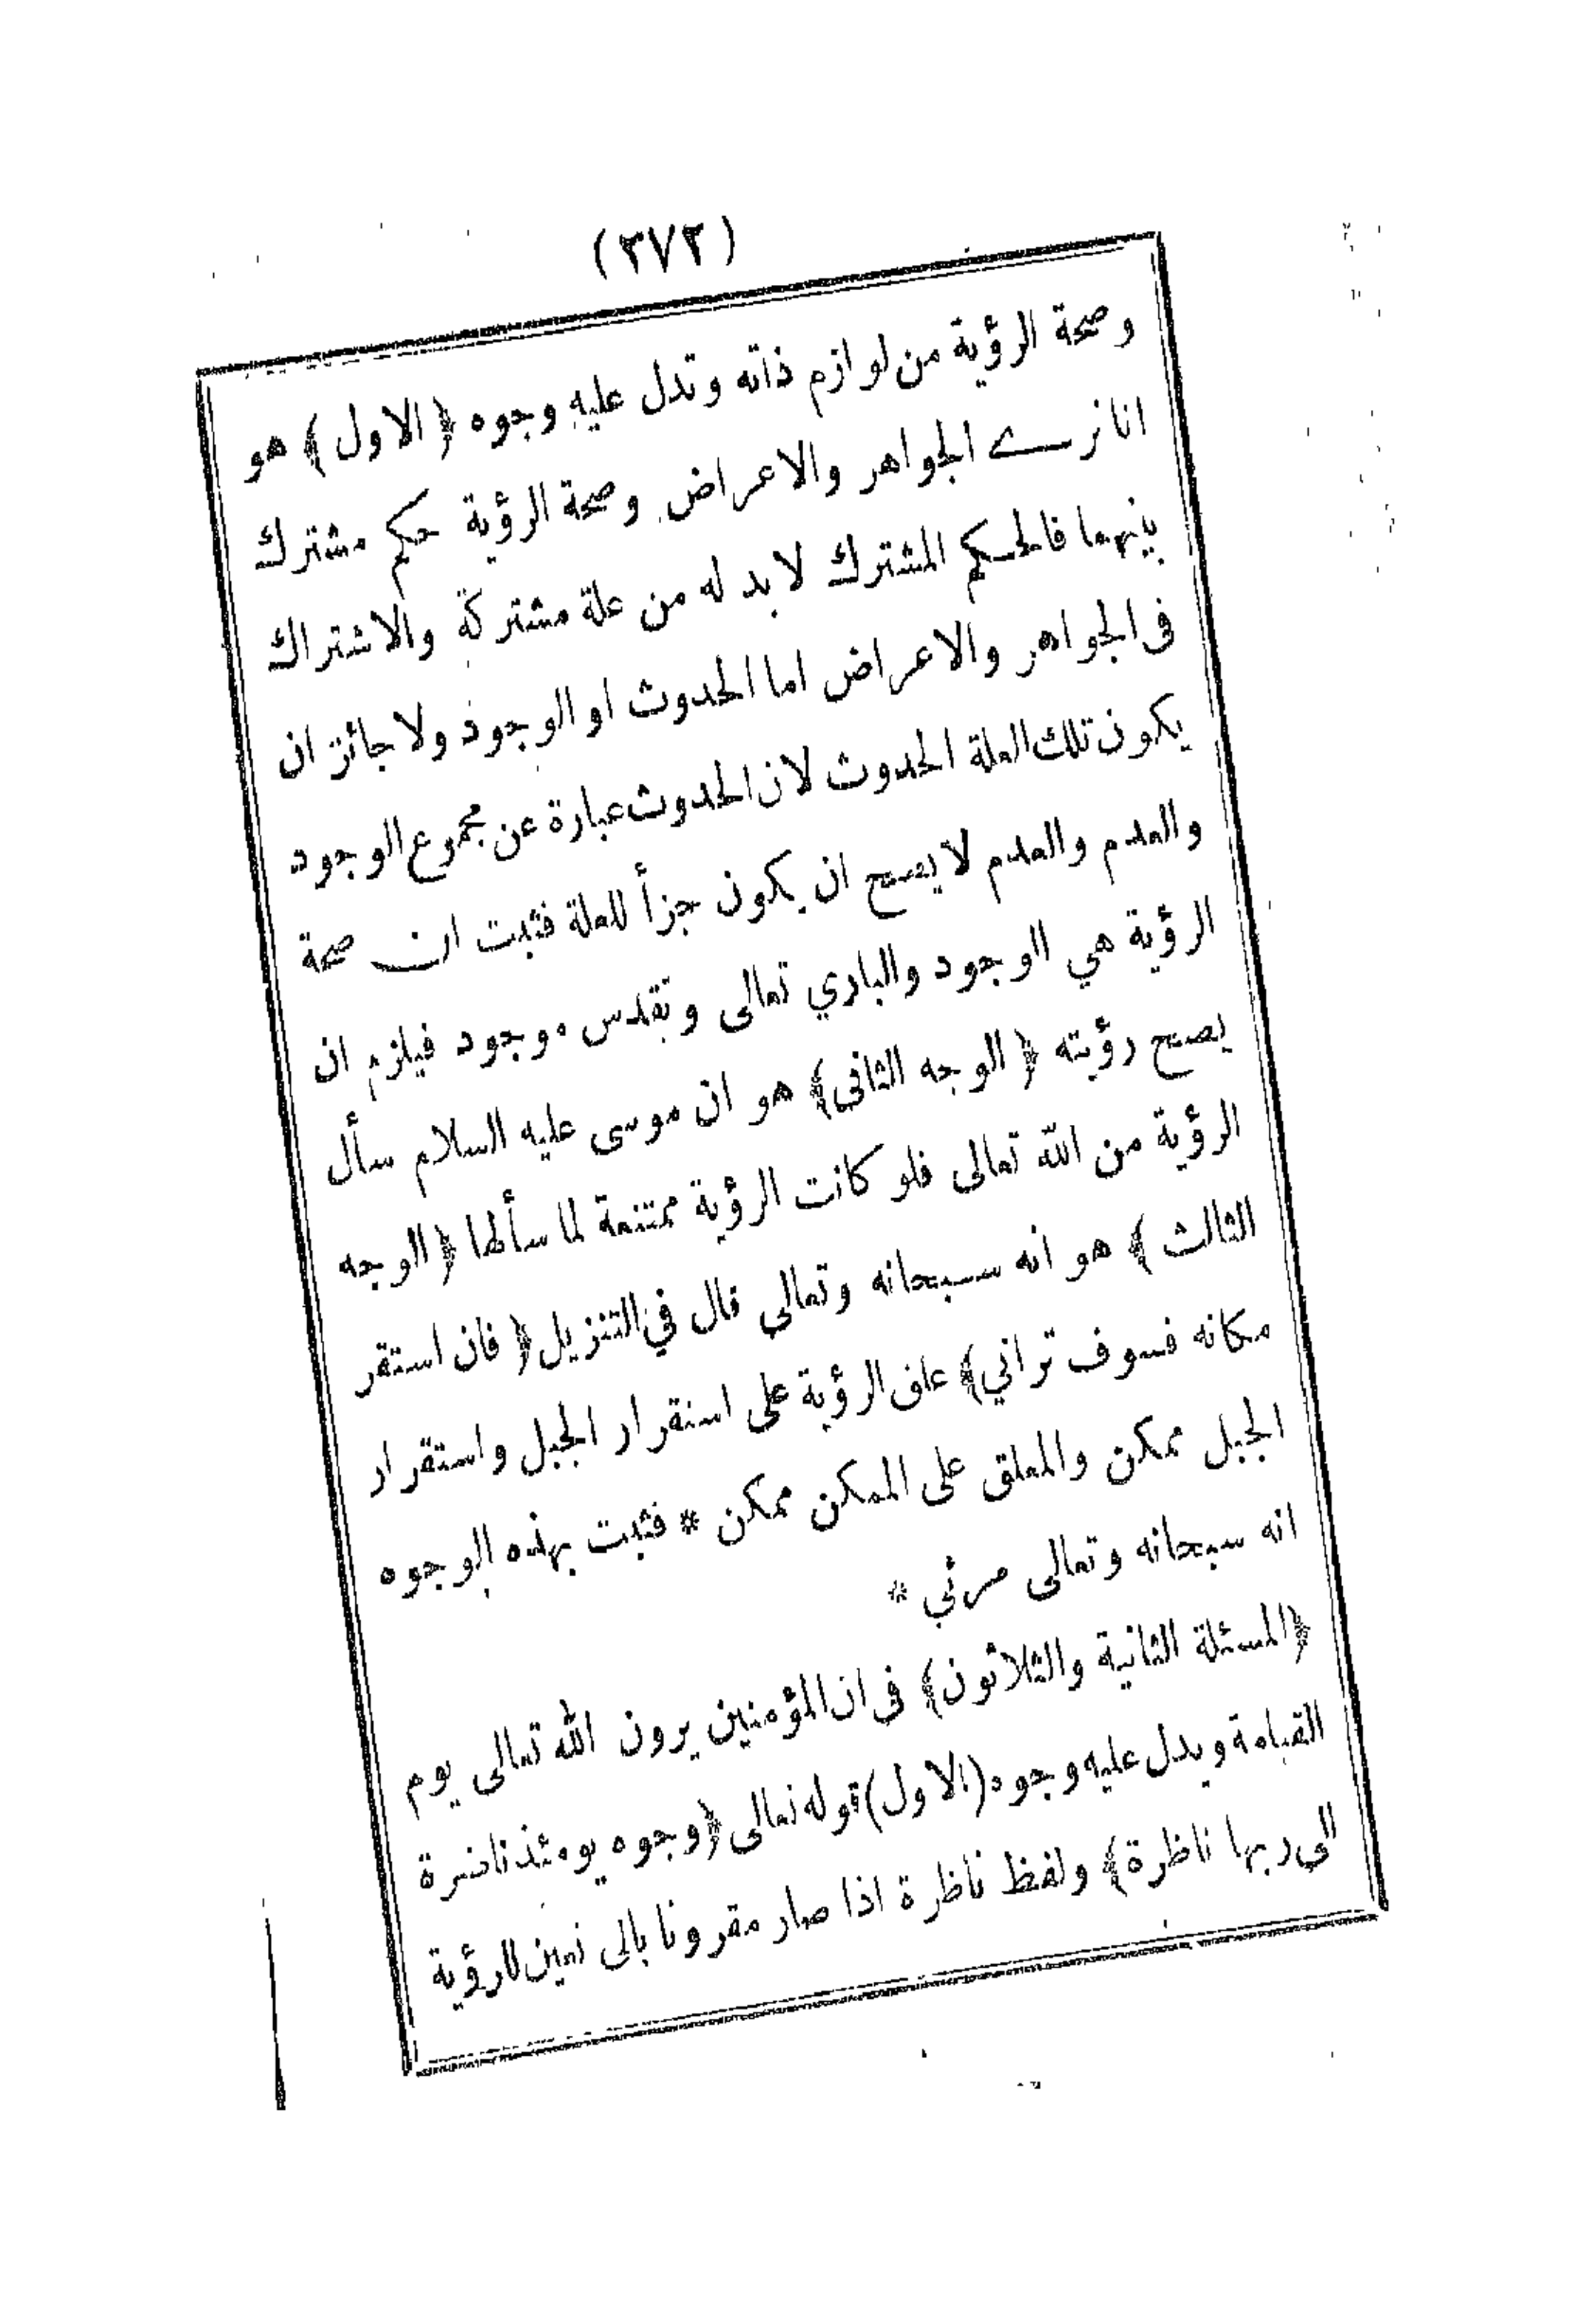 (٣٧٢)
وصحة الرؤية من لوازم ذاته وتدل عليه وجوه ﴿ الاول ﴾ هو
انا نرى الجواهر والاعراض وصحة الرؤية حكم مشترك
بينهما فالحكم المشترك لا بد له من علة مشتركة والاشتراك
فى الجواهر والاعراض اما الحدوث او الوجود ولا جائز ان
يكون تلك العلة الحدوث لان الحدوث عبارة عن مجموع الوجود
والعدم والعدم لا يصح ان يكون جزأ للعلة فثبت ان صحة
الرؤية هي الوجود والباري تعالى وتقدس موجود فيلزم ان
يصح رؤيته ﴿ الوجه الثانى ﴾ هو ان موسى عليه السلام سأل
الرؤية من الله تعالى فلو كانت الرؤية ممتنعة لما سألها ﴿ الوجه
الثالث ﴾ هو انه سبحانه وتعالى قال في التنزيل ﴿ فان استقر
مكانه فسوف تراني ﴾ علق الرؤية على استقرار الجبل واستقرار
الجبل ممكن والمعلق على الممكن ممكن * فثبت بهذه الوجوه
انه سبحانه وتعالى مرئي *
﴿ المسئلة الثانية والثلاثون ﴾ فى ان المؤمنين يرون الله تعالى يوم
القيامة ويدل عليه وجوه (الاول) قوله تعالى ﴿ وجوه يومئذ ناضرة
الى ربها ناظرة ﴾ ولفظ ناظرة اذا صار مقرونا بالى تعين للرؤية